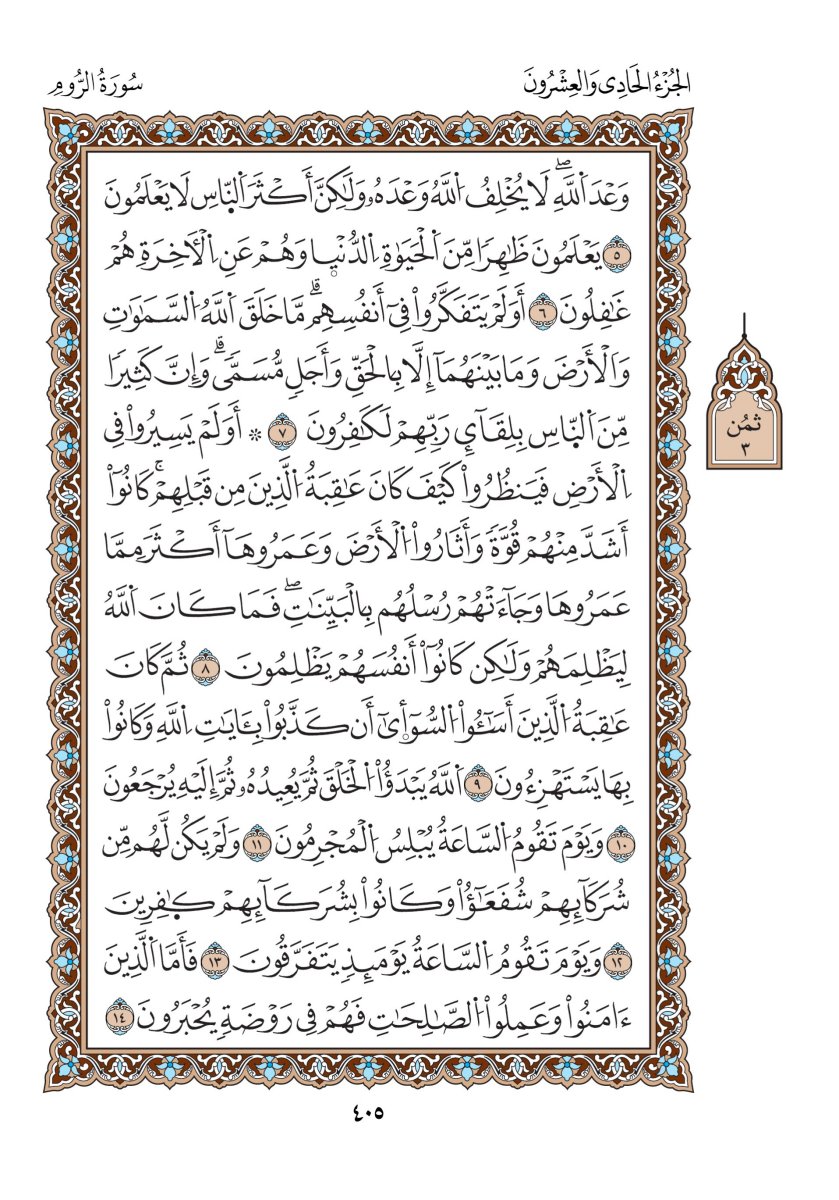 الجُزْءُ الحَادِى وَالعِشْرُونَ
سُورَةُ الرُّومِ
وَعْدَ اَ۬للَّهِۖ لَا يُخْلِفُ اُ۬للَّهُ وَعْدَهُۥ وَلَٰكِنَّ أَكْثَرَ اَ۬لنَّاسِ لَا يَعْلَمُونَ
٥ يَعْلَمُونَ ظَٰهِرٗا مِّنَ اَ۬لْحَيَوٰةِ اِ۬لدُّنْي۪ا وَهُمْ عَنِ اِ۬لْأٓخِرَةِ هُمْ
غَٰفِلُونَ ٦ أَوَلَمْ يَتَفَكَّرُواْ فِيٓ أَنفُسِهِمۗ مَّا خَلَقَ اَ۬للَّهُ اُ۬لسَّمَٰوَٰتِ
وَالْأَرْضَ وَمَا بَيْنَهُمَآ إِلَّا بِالْحَقِّ وَأَجَلٖ مُّسَمّٗىۗ وَإِنَّ كَثِيرٗا
مِّنَ اَ۬لنّ۪اسِ بِلِقَآيِٕ رَبِّهِمْ لَكَٰفِرُونَ ٧ ۞ أَوَلَمْ يَسِيرُواْ فِي
اِ۬لْأَرْضِ فَيَنظُرُواْ كَيْفَ كَانَ عَٰقِبَةُ اُ۬لَّذِينَ مِن قَبْلِهِمْۚ كَانُوٓاْ
أَشَدَّ مِنْهُمْ قُوَّةٗ وَأَثَارُواْ اُ۬لْأَرْضَ وَعَمَرُوهَآ أَكْثَرَ مِمَّا
عَمَرُوهَا وَجَآءَتْهُمْ رُسْلُهُم بِالْبَيِّنَٰتِۖ فَمَا كَانَ اَ۬للَّهُ
لِيَظْلِمَهُمْ وَلَٰكِن كَانُوٓاْ أَنفُسَهُمْ يَظْلِمُونَ ٨ ثُمَّ كَانَ
عَٰقِبَةُ اُ۬لَّذِينَ أَسَٰٓـُٔواْ اُ۬لسُّوٓأ۪يٰٓ أَن كَذَّبُواْ بِـَٔايَٰتِ اِ۬للَّهِ وَكَانُواْ
بِهَا يَسْتَهْزِءُونَ ٩ اَ۬للَّهُ يَبْدَؤُاْ اُ۬لْخَلْقَ ثُمَّ يُعِيدُهُۥ ثُمَّ إِلَيْهِ يُرْجَعُونَ
١٠ وَيَوْمَ تَقُومُ اُ۬لسَّاعَةُ يُبْلِسُ اُ۬لْمُجْرِمُونَ ١١ وَلَمْ يَكُن لَّهُم مِّن
شُرَكَآئِهِمْ شُفَعَٰٓؤُاْ وَكَانُواْ بِشُرَكَآئِهِمْ كٰ۪فِرِينَ
١٢ وَيَوْمَ تَقُومُ اُ۬لسَّاعَةُ يَوْمَئِذٖ يَتَفَرَّقُونَ ١٣ فَأَمَّا اَ۬لَّذِينَ
ءَامَنُواْ وَعَمِلُواْ اُ۬لصَّٰلِحَٰتِ فَهُمْ فِي رَوْضَةٖ يُحْبَرُونَ ١٤
ثُمُن
٣
٤٠٥